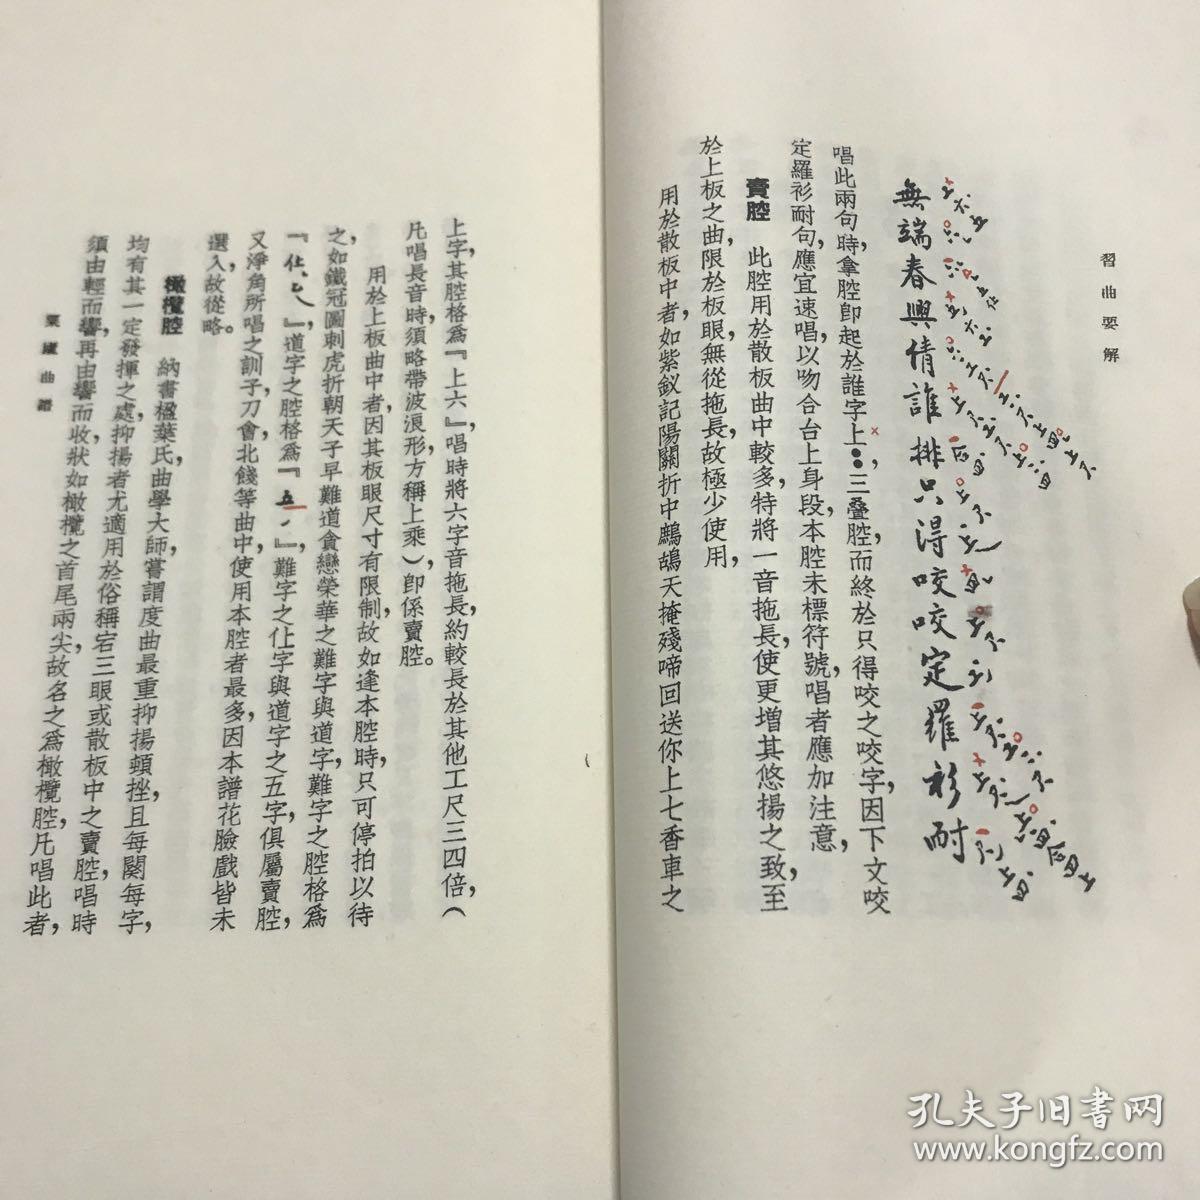 習曲要解
無端春興倩誰排只得咬咬定羅衫耐
唱此兩句時拿腔卽起於誰字上,三叠腔,而終於只得咬之咬字,因下文咬
定羅衫耐句,應宜速唱,以吻合台上身段,本腔未標符號,唱者應加注意,
賣腔 此腔用於散板曲中較多,特將一音拖長,使更增其悠揚之致,至
於上板之曲,限於板眼,無從拖長,故極少使用,
用於散板中者,如紫釵記陽關折中鷓鴣天掩殘啼回送你上七香車之
上字,其腔格爲『上六』唱時將六字音拖長,約較長於其他工尺三四倍,(
凡唱長音時,須略帶波浪形,方稱上乘)卽係賣腔。
用於上板曲中者,因其板眼尺寸有限制,故如逢本腔時,只可停拍以待
之,如鐵冠圖刺虎折朝天子早難道貪戀榮華之難字與道字,難字之腔格爲
『仩』道字之腔格爲『五』難字之仩字與道字之五字,俱屬賣腔,
又淨角所唱之訓子刀會北餞等曲中,使用本腔者最多,因本譜花臉戲皆未
選入,故從略。
橄欖腔 納書楹葉氏,曲學大師,嘗謂度曲最重抑揚頓挫,且每闋每字,
均有其一定發揮之處,抑揚者尤適用於俗稱宕三眼或散板中之賣腔,唱時
須由輕而響,再由響而收,狀如橄欖之首尾兩尖,故名之爲橄欖腔,凡唱此者,
粟廬曲譜
孔夫子旧书网
www.kongfz.com